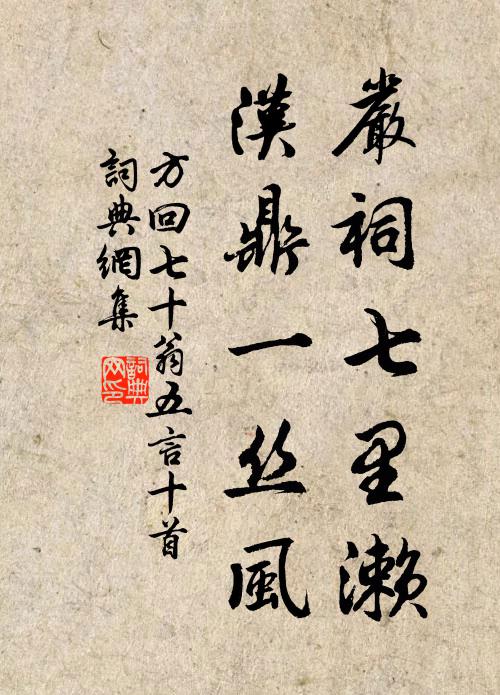 嚴祠七里瀨
漢鼎一丝風
方回七十翁五言十首
詞典網集
詞典
网印